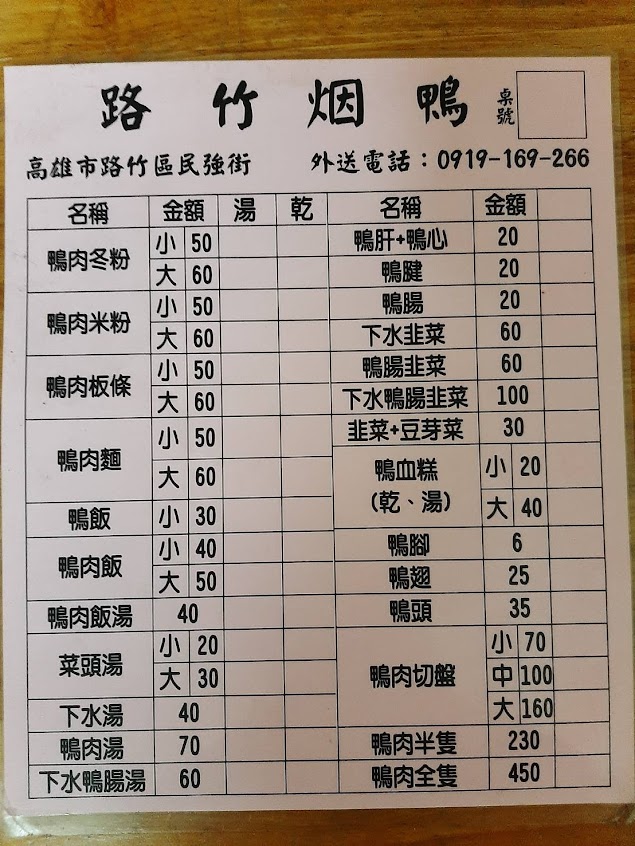 路竹烟鴨 桌號
高雄市路竹區民強街 外送電話：0919-169-266
名稱 金額 湯 乾 名稱 金額
鴨肉冬粉 小 50 鴨肝+鴨心 20
大 60 鴨腱 20
鴨肉米粉 小 50 鴨腸 20
大 60 下水韭菜 60
鴨肉板條 小 50 鴨腸韭菜 60
大 60 下水鴨腸韭菜 100
鴨肉麵 小 50 韭菜+豆芽菜 30
大 60 鴨血糕(乾、湯) 小 20
鴨飯 小 30 大 40
鴨肉飯 小 40 鴨腳 6
大 50 鴨翅 25
鴨肉飯湯 40 鴨頭 35
菜頭湯 小 20 鴨肉切盤 小 70
大 30 中 100
下水湯 40 大 160
鴨肉湯 70 鴨肉半隻 230
下水鴨腸湯 60 鴨肉全隻 450